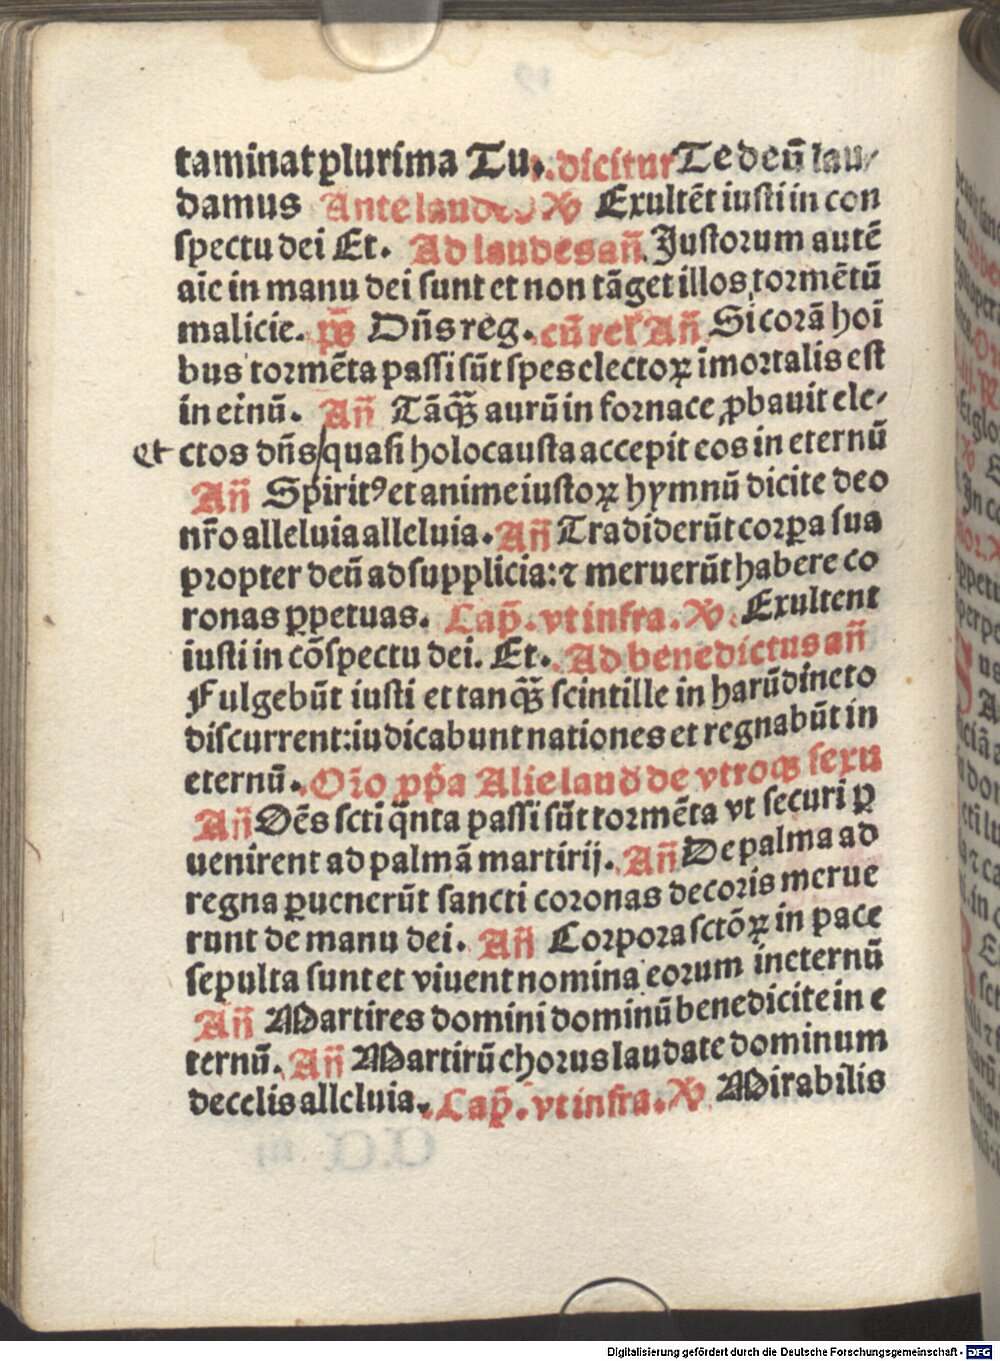 taminat plurima Tu. dicitur Te deū lau⸗
damus Ante laudes ℣ Exultēt iusti in con
spectu dei Et. Ad laudes añ. Justorum autē
aīe in manu dei sunt et non tāget illos tormētū
malicie. p̄s Dn̄s reg. cū rel' Añ Si corā hoī
bus tormēta passi sūt spes electoꝝ īmortalis est
in et̄nū. Añ Tāqȝ̄ aurū in fornace ꝓbauit ele⸗
et ctos dn̄s/quasi holocausta accepit eos in eternū
Añ Spiritꝰ et anime iustoꝝ hymnū dicite deo
nr̄o alleluia alleluia. Añ Tradiderūt corꝑa sua
propter deū ad supplicia: ⁊ meruerūt habere co
ronas ꝑpetuas. Cap̄. vt infra. ℣. Exultent
iusti in cōspectu dei. Et. Ad benedictus añ
Fulgebūt iusti et tanqȝ̄ scintille in harūdineto
discurrent: iudicabunt nationes et regnabūt in
eternū. Or̄o pp̄a Alie laud̄ de vtroqȝ sexu
Añ Oēs scti q̄nta passi sūt tormēta vt securi ꝑ
uenirent ad palmā martirij. Añ De palma ad
regna ꝑuenerūt sancti coronas decoris merue
runt de manu dei. Añ Corpora sctōꝝ in pace
sepulta sunt et viuent nomina eorum in eternū
Añ Martires domini dominū benedicite in e
ternū. Añ Martirū chorus laudate dominum
de celis alleluia. Cap̄. vt infra. ℣ Mirabilis
Digitalisierung gefördert durch die Deutsche Forschungsgemeinschaft - DFG